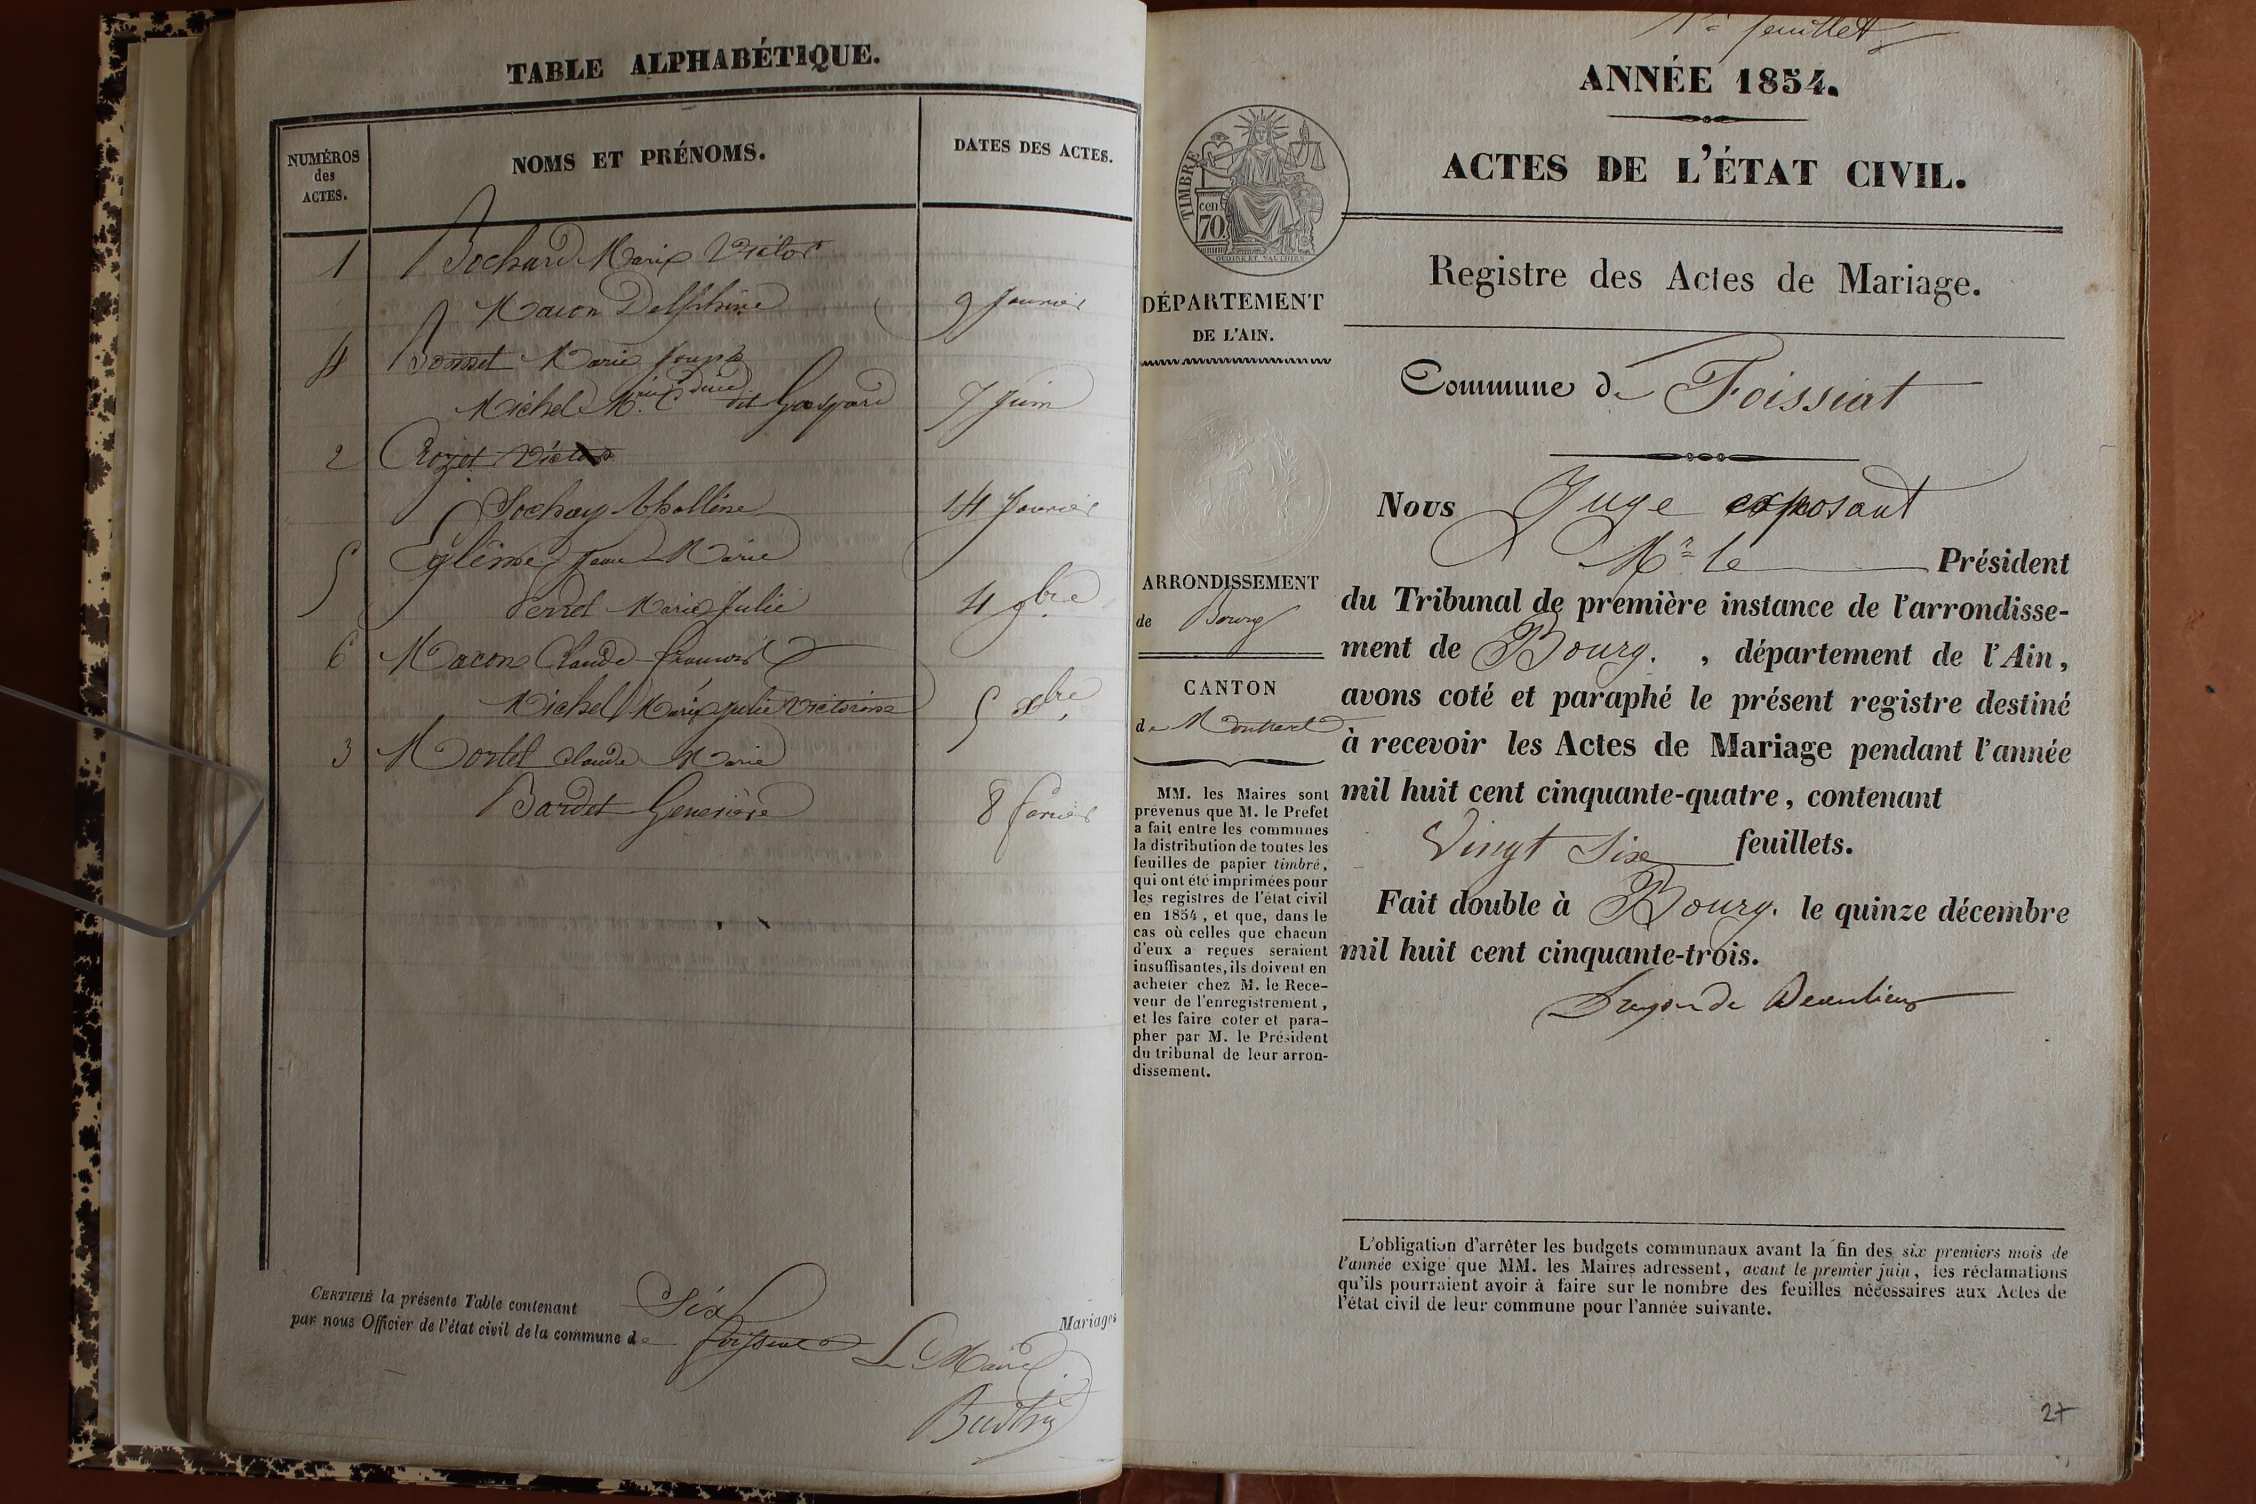 TABLE ALPHABÉTIQUE.
NUMÉROS des ACTES.
NOMS ET PRÉNOMS.
DATES DES ACTES.
1 Bochard Marie Victor
Macon Delphine 9 Janvier
4 Bonnet Marie Joseph
Michel M.rie dit Gaspard 7 Juin
2 Crozet Victor
Sochay 14 Janvier
5 Jean Marie
Perret Marie Julie 4 9bre
6 Macon Claude François
Michel Marie Julie Victorine 5 Xbre
3 Mortel Claude Marie
Bardet Geneviève 8 Février
CERTIFIÉ la présente Table contenant Six Mariages
par nous Officier de l'état civil de la commune de Foissiat
Le Maire
1er feuillet
ANNÉE 1854.
ACTES DE L'ÉTAT CIVIL.
TIMBRE
cen.
70
Registre des Actes de Mariage.
DÉPARTEMENT
DE L'AIN.
Commune de Foissiat
Nous Juge exposant
Mr le Président
du Tribunal de première instance de l'arrondisse-
ment de Bourg. , département de l'Ain,
avons coté et paraphé le présent registre destiné
à recevoir les Actes de Mariage pendant l'année
mil huit cent cinquante-quatre, contenant
Vingt Six feuillets.
Fait double à Bourg. le quinze décembre
mil huit cent cinquante-trois.
ARRONDISSEMENT
de Bourg
CANTON
de Montrevel
MM. les Maires sont
prévenus que M. le Préfet
a fait entre les communes
la distribution de toutes les
feuilles de papier timbré,
qui ont été imprimées pour
les registres de l'état civil
en 1854, et que, dans le
cas où celles que chacun
d'eux a reçues seraient
insuffisantes, ils doivent en
acheter chez M. le Rece-
veur de l'enregistrement,
et les faire coter et para-
pher par M. le Président
du tribunal de leur arron-
dissement.
L'obligation d'arrêter les budgets communaux avant la fin des six premiers mois de
l'année exige que MM. les Maires adressent, avant le premier juin, les réclamations
qu'ils pourraient avoir à faire sur le nombre des feuilles nécessaires aux Actes de
l'état civil de leur commune pour l'année suivante.
27